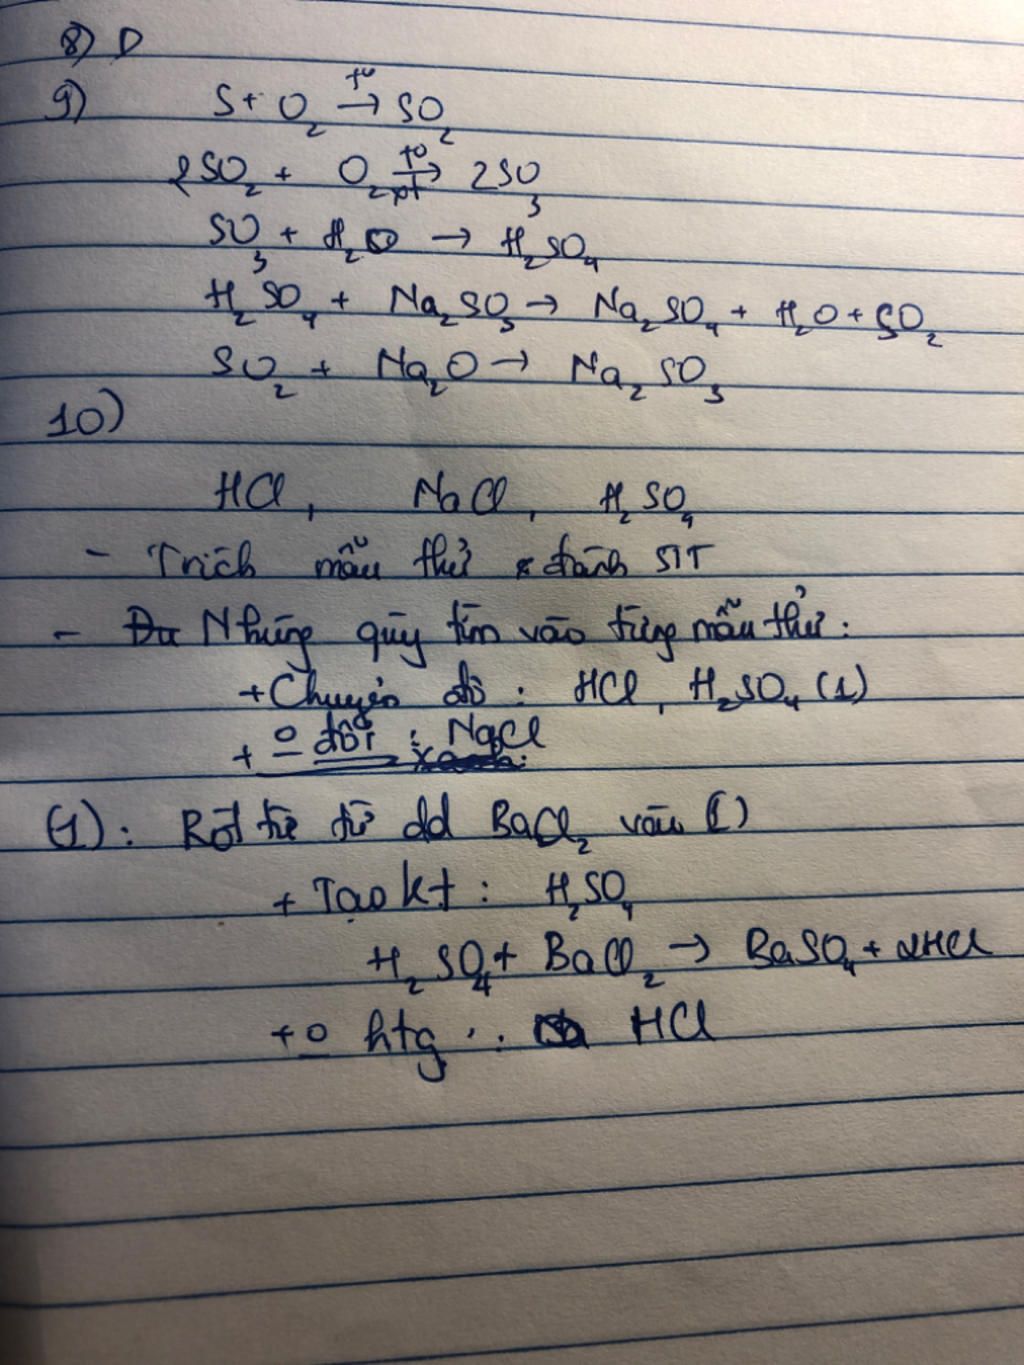 8) D
9) S + O₂ →(t⁰) SO₂
2SO₂ + O₂ →(t⁰, xt) 2SO₃
SO₃ + H₂O → H₂SO₄
H₂SO₄ + Na₂SO₃ → Na₂SO₄ + H₂O + SO₂
SO₂ + Na₂O → Na₂SO₃
10)
HCl, NaCl, H₂SO₄
- Trích mẫu thử đánh STT
- Nhúng quỳ tím vào từng mẫu thử:
+ Chuyển đỏ: HCl, H₂SO₄ (1)
+ o đổi: NaCl
(1): Rót từ từ dd BaCl₂ vào (1)
+ Tạo kt: H₂SO₄
H₂SO₄ + BaCl₂ → BaSO₄ + 2HCl
+ o htg: HCl